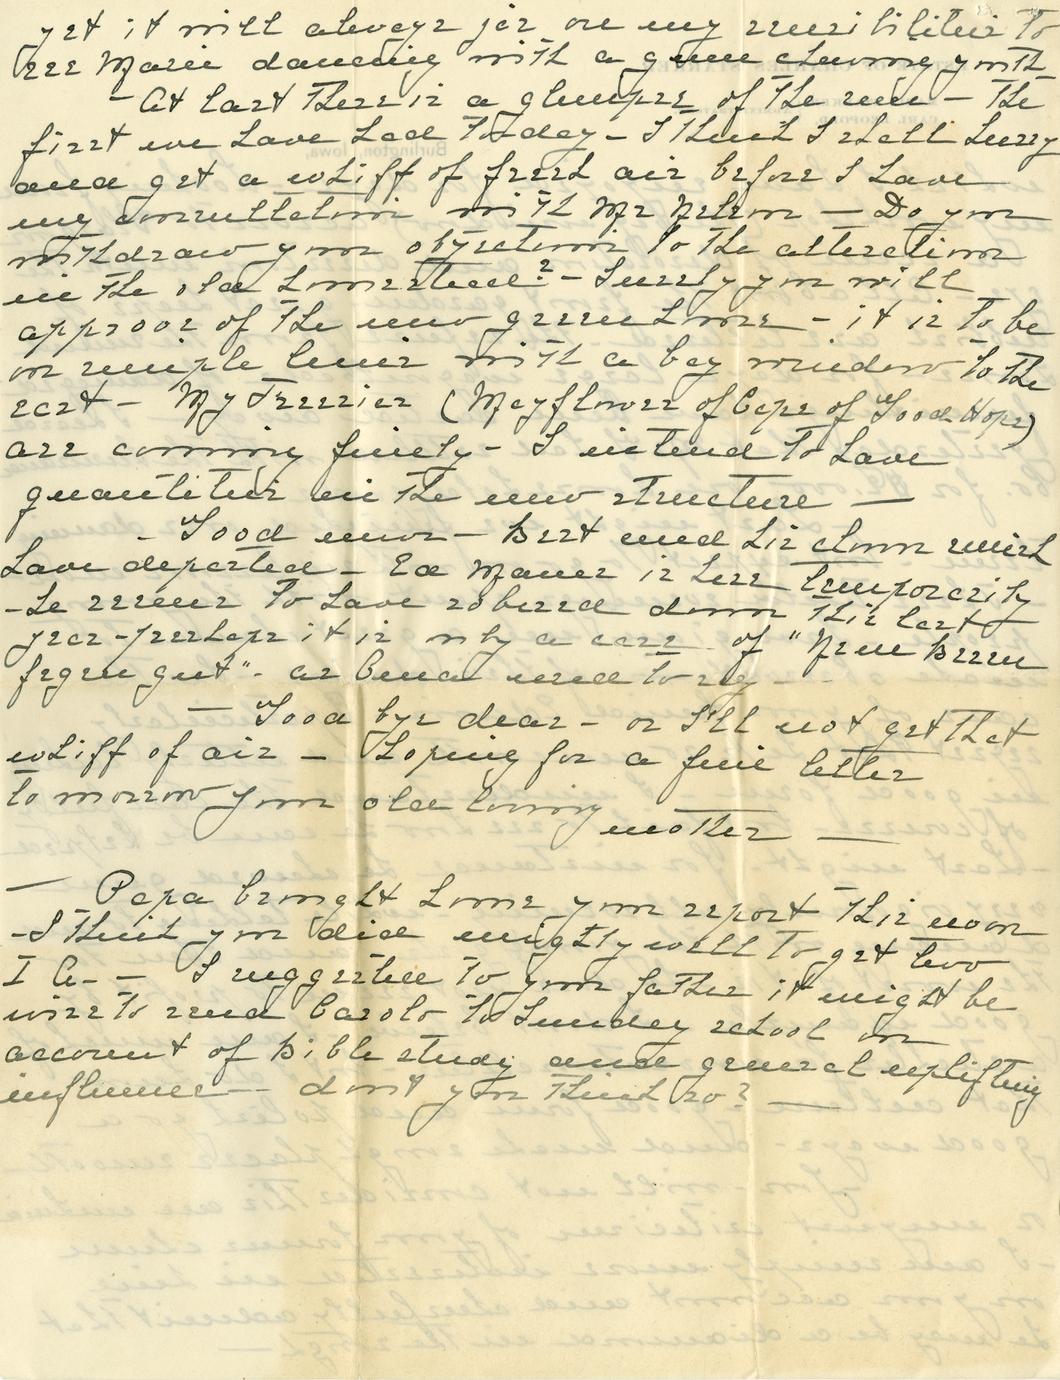 yet it will always jar on my sensibilities to
see Marie dancing with a gum chewing youth
- At last there is a glimpse of the sun - the
first we have had today - I think I shall hurry
and get a whiff of fresh air before I have
my consultation with Mr Nelson - Do you
withdraw your objections to the alterations
in the old homestead? - Surely you will
approve of the new green house - it is to be
on simple lines with a bay window to the
east - My Freesias (Mayflower of Cape of "Good Hope)
are coming finely - I intend to have
quantities in the new structure -
- "Good news - Bert and his clown suits
have departed - Ed Maner is here temporarily
- he seems to have sobered down this last
year - perhaps it is only a case of "
" - as used to say -
- "Good bye dear - or I'll not get that
whiff of air - hoping for a fine letter
tomorrow your old loving
mother -
- Papa brought home your report this noon
- I think you did mighty well to get two
I A. - I suggested to your father it might be
wise to send Carolo to Sunday school on
account of Bible study and general uplifting
influence - don't you think so? -
Burlington, Iowa.